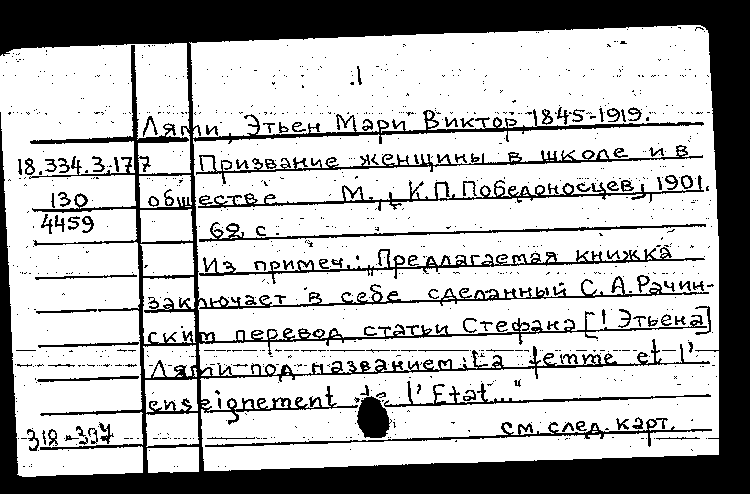 1
Лями, Этьен Мари Виктор, 1845-1919.
18.334.3.177 Призвание женщины в школе и в
130 обществе М., [К.П.Победоносцев], 1901.
4459 62 с.
Из примеч.: „Предлагаемая книжка
заключает в себе сделанный С.А.Рачин-
ским перевод статьи Стефана [! Этьена]
Лями под названием: La femme et l'
enseignement de l'Etat..."
318-397 см. след. карт.